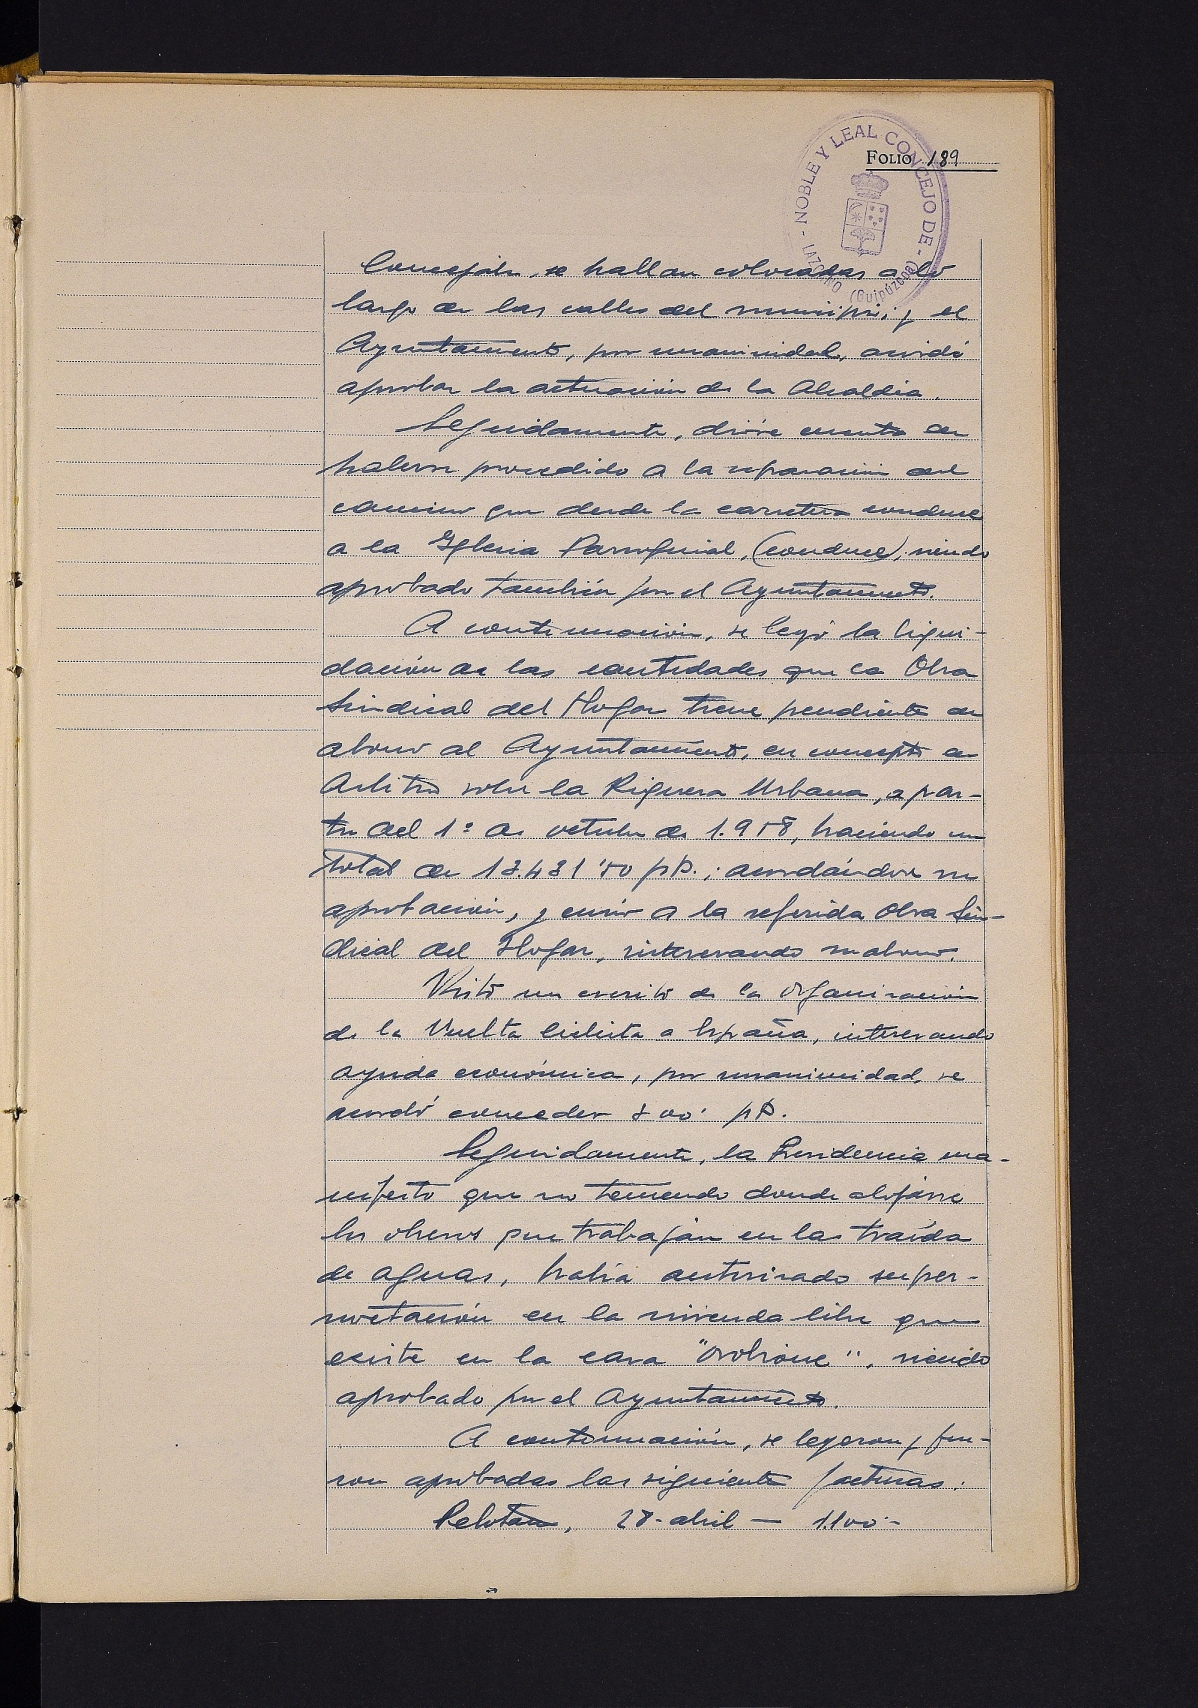 FOLIO 189
- NOBLE Y LEAL CONCEJO DE - LAZCANO (Guipúzcoa)
Concejales, se hallan colocadas a lo
largo de las calles del municipio; y el
Ayuntamiento, por unanimidad, acordó
aprobar la actuación de la Alcaldía.
Seguidamente, dióse cuenta de
haberse procedido a la reparación del
camino que desde la carretera conduce
a la Iglesia Parroquial, (conduce), siendo
aprobado también por el Ayuntamiento.
A continuación, se leyó la liqui-
dación de las cantidades que la Obra
Sindical del Hogar tiene pendiente de
abono al Ayuntamiento, en concepto de
Arbitrio sobre la Riqueza Urbana, a par-
tir del 1º de octubre de 1.958, haciendo un
total de 13.431'50 pts.; acordándose su
aprobación, y enviar a la referida Obra Sin-
dical del Hogar, interesando su abono.
Visto un escrito de la organización
de la Vuelta Ciclista a España, interesando
ayuda económica, por unanimidad, se
acordó conceder 500' pts.
Seguidamente, la Presidencia ma-
nifestó que no teniendo donde alojarse
los obreros que trabajan en las traída
de aguas, había autorizado su per-
noctación en la vivienda libre que
existe en la casa , siendo
aprobado por el Ayuntamiento.
A continuación, se leyeron y fue-
ron aprobadas las siguientes facturas:
28-abril — 1.100'-